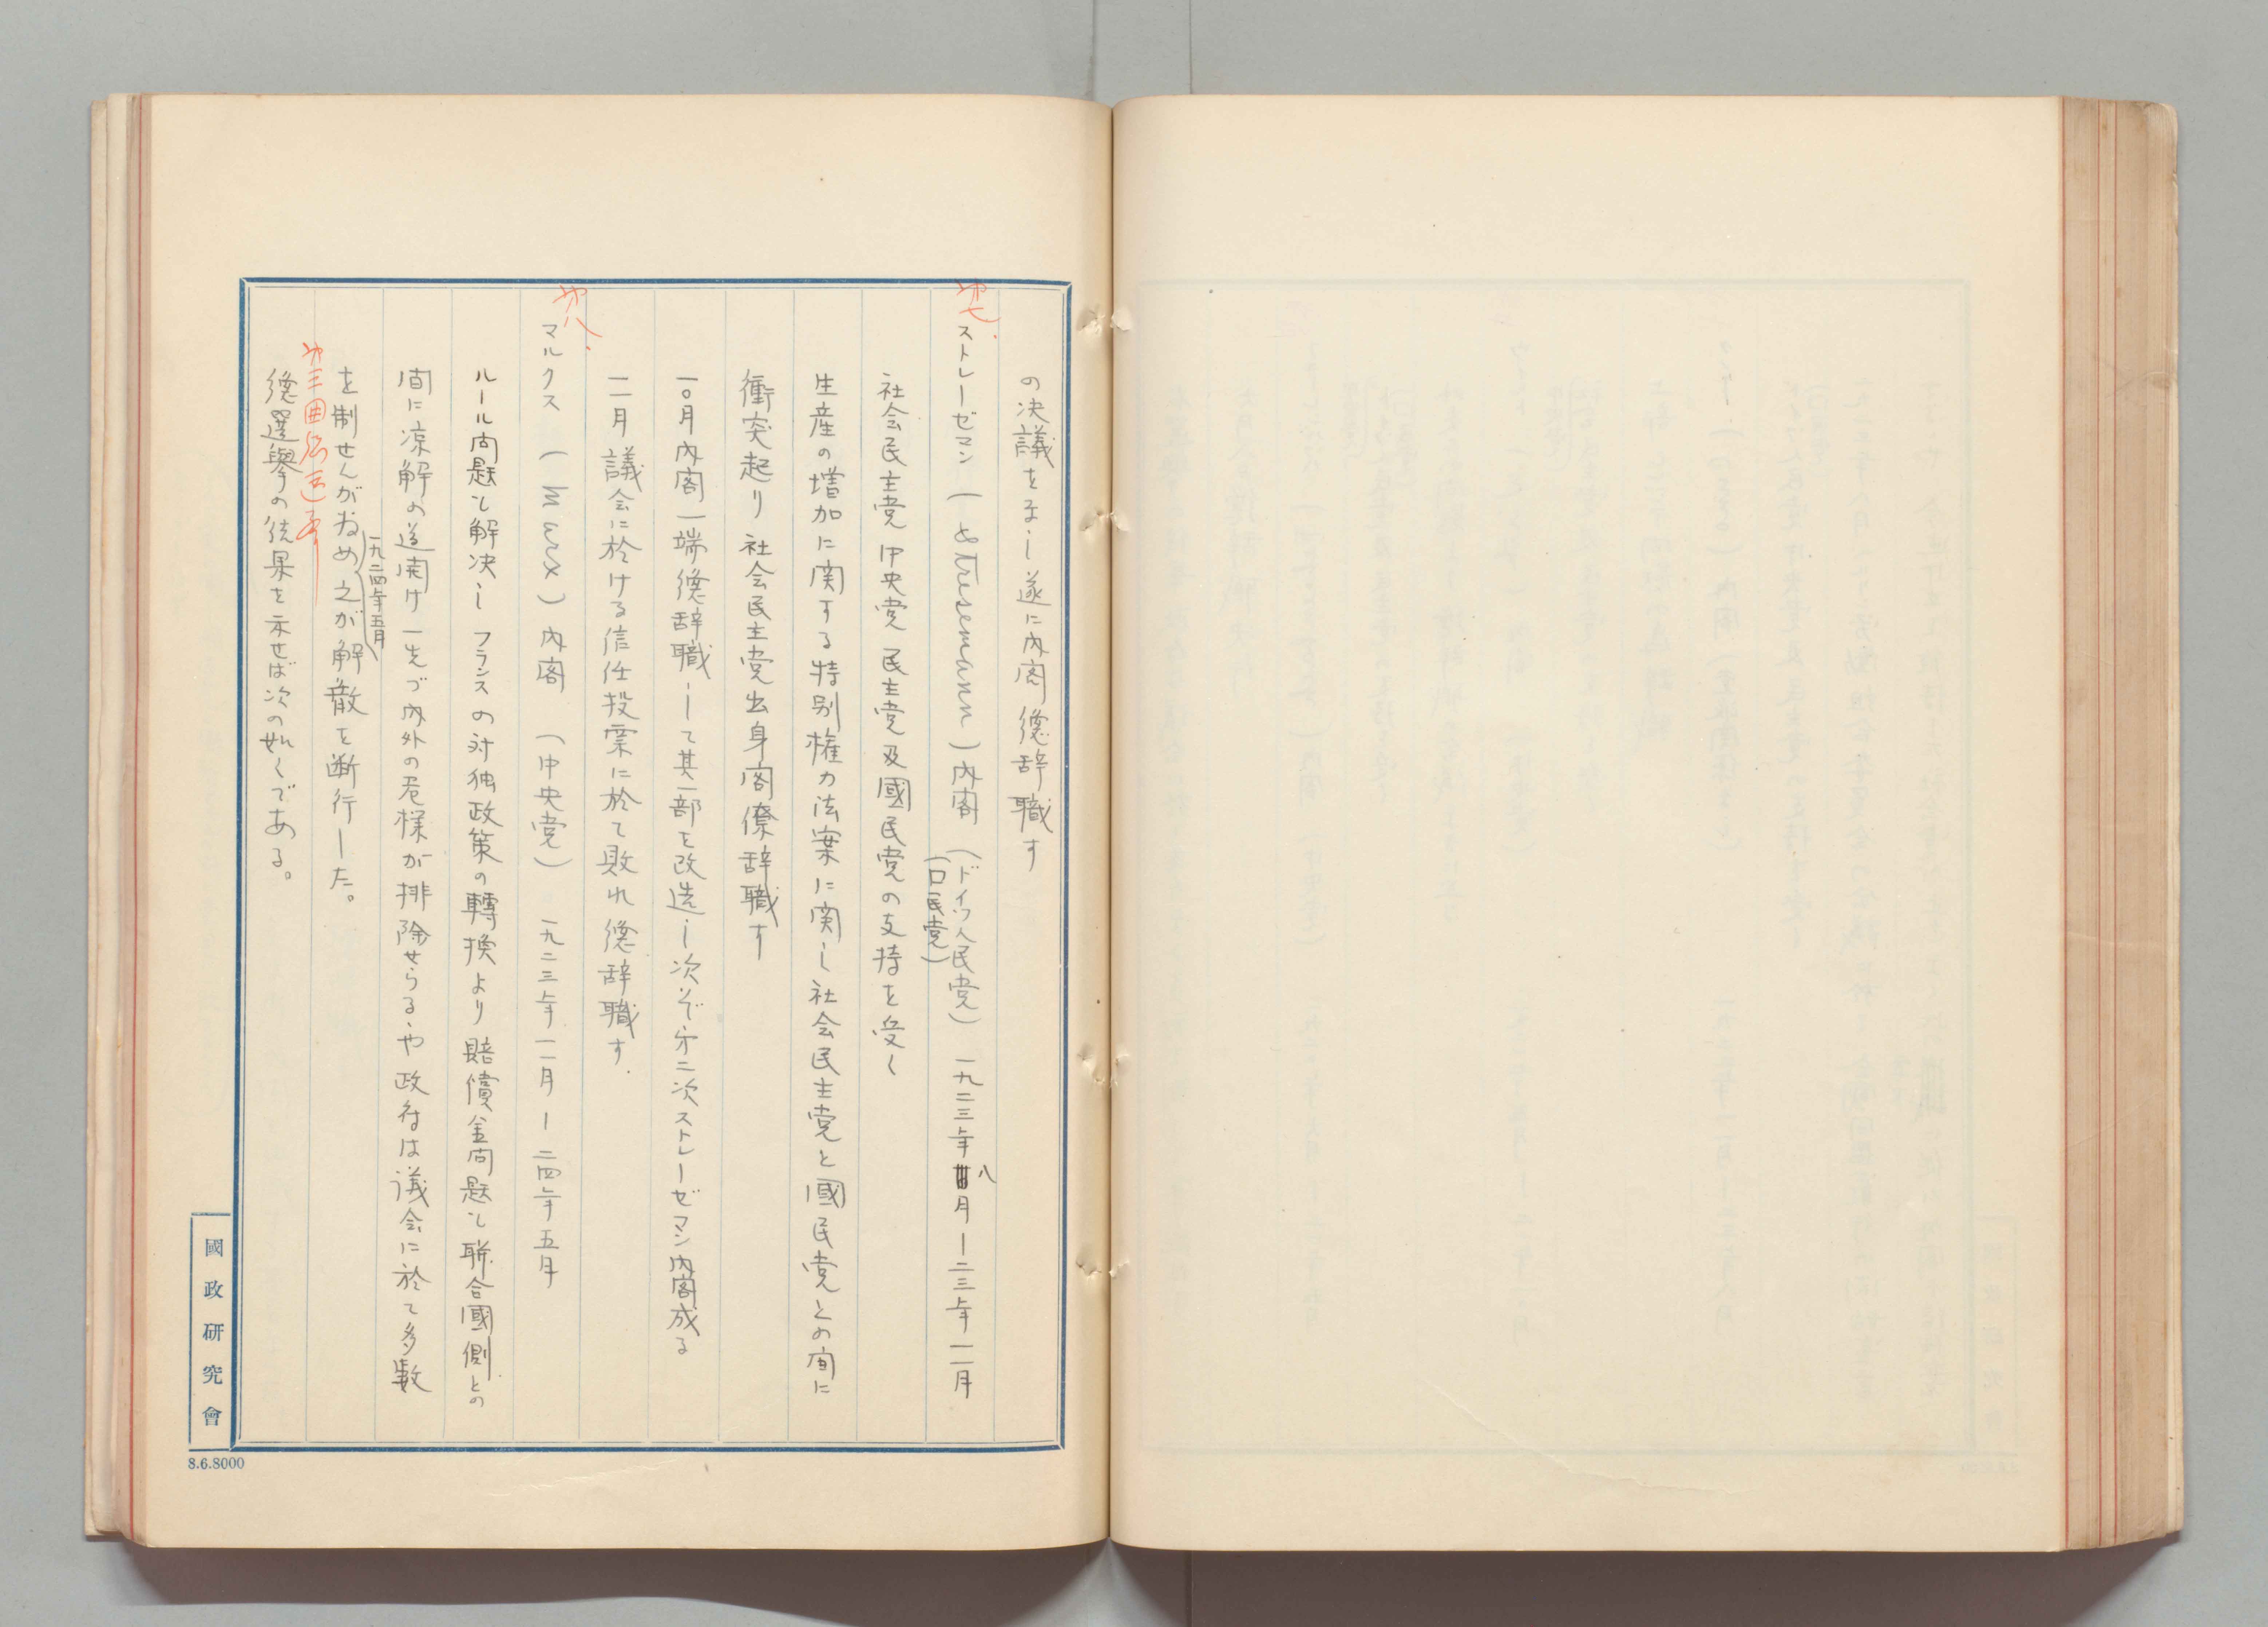 の決議をなし遂に内閣總辞職す
七、
ストレーゼマン（Stresemann）内閣（ドイツ人民党）一九二三年八月ー二三年一一月
（口民党）
社会民主党中央党民主党及國民党の支持を受く
生産の増加に関する特別権力法案に関し社会民主党と國民党との間に
衝突起り社会民主党出身閣僚辞職す
一〇月内閣一端總辞職して其一部を改造し次で第二次ストレーゼマン内閣成る
一一月議会に於ける信任投票に於て敗れ總辞職す.
八、
マルクス（Marx）内閣（中央党）一九二三年一一月ー二四年五月
ルール問題を解決しフランスの対独政策の轉換より賠償金問題も聯合國側との
間に凉解の道開け一先づ内外の危機が排除せらるゝや政府は議会に於て多数
（一九二四年五月）
を制せんがため之が解散を断行した。
第三回
總選擧の結果を示せば次の如くである。
國政研究會
8.6.8000